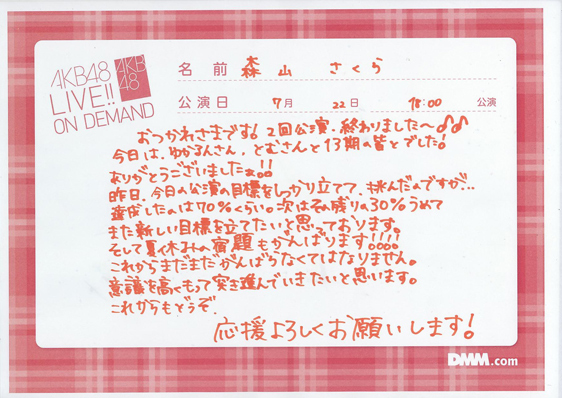 AKB48
LIVE!!
ON DEMAND
AKB
48
名前 森山 さくら
公演日 7月 22日 18:00 公演
おつかれさまです! 2回公演、終わりました〜♪♪
今日は、ゆかるんさん、とむさんと13期の皆とでした!
ありがとうございましたぁ!!
昨日、今日の公演の目標をしっかり立てて、挑んだのですが…
達成したのは70%くらい。次はその残りの30%うめて
また新しい目標を立てたいと思っております。
そして夏休みの宿題もがんばります!!!!
これからまだまだがんばらなくてはなりません。
意識を高くもって突き進んでいきたいと思います。
これからもどうぞ、
応援よろしくお願いします!
DMM.com